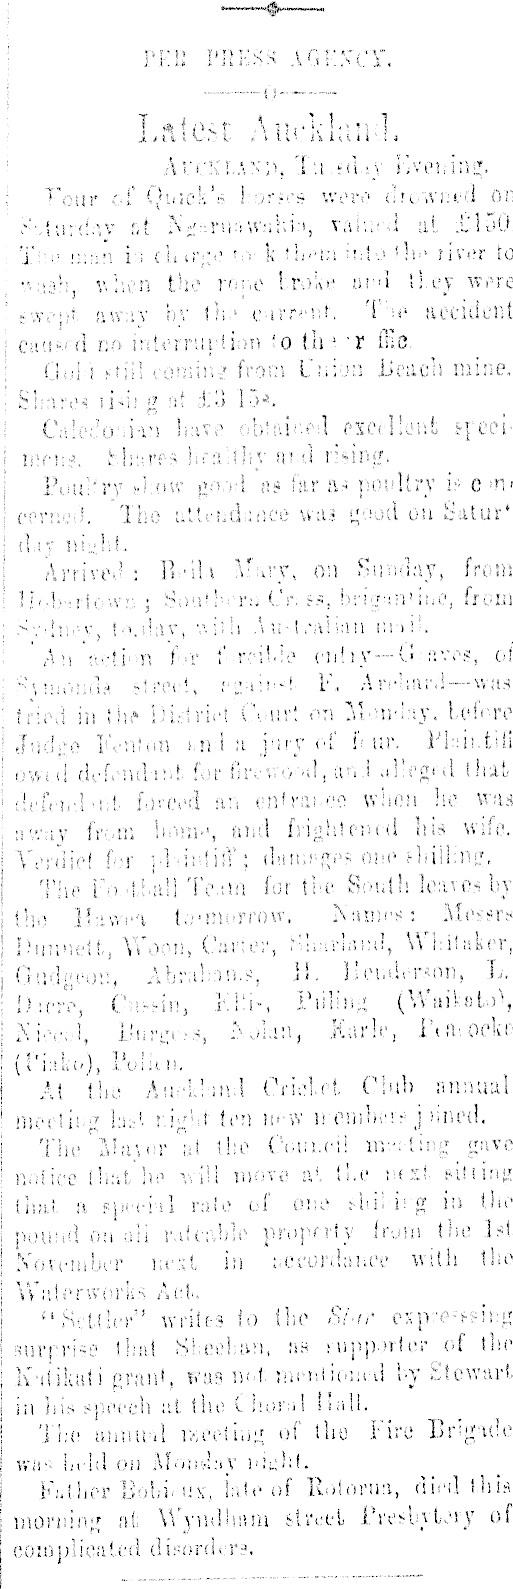 PER PRESS AGENCY.
Latest Auckland.
AUCKLAND, Tuesday Evening.
Four of Quick's horses were drowned on
Saturday at Ngaruawahia, valued at £150
The man in charge took them into the river to
wash, when the rope broke and they were
swept away by the current. The accident
caused no interruption to the
Gold still coming from Union Beach mine.
Shares rising at £3 15s.
Caledonian have obtained excellent speci-
mens. Shares healthy and rising.
Poultry show good as far as poultry is con-
cerned. The attendance was good on Satur-
day night.
Arrived: Bella Mary, on Sunday, from
Hobartown; Southern Cross, brigantine, from
Sydney, to-day, with Australian mail.
An action for forcible entry—Graves, of
Symonds street, against F. Archard—was
tried in the District Court on Monday, before
Judge Fenton and a jury of four. Plaintiff
owed defendant for firewood, and alleged that
defendant forced an entrance when he was
away from home, and frightened his wife.
Verdict for plaintiff; damages one shilling.
The Football Team for the South leaves by
the Hawea to-morrow. Names: Messrs
Dunnett, Woon, Carter, Sharland, Whitaker,
Gudgeon, Abrahams, H. Henderson, L.
Dacre, Cussin, Ellis, Pilling (Waikato),
Niccol, Burgess, Nolan, Earle, Peacocke
(Piako), Pollen.
At the Auckland Cricket Club annual
meeting last night ten new members joined.
The Mayor at the Council meeting gave
notice that he will move at the next sitting
that a special rate of one shilling in the
pound on all rateable property from the 1st
November next in accordance with the
Waterworks Act.
"Settler" writes to the Star expresssing
surprise that Sheehan, as supporter of the
Katikati grant, was not mentioned by Stewart
in his speech at the Choral Hall.
The annual meeting of the Fire Brigade
was held on Monday night.
Father Bobieux, late of Rotorua, died this
morning at Wyndham street Presbytery of
complicated disorders.